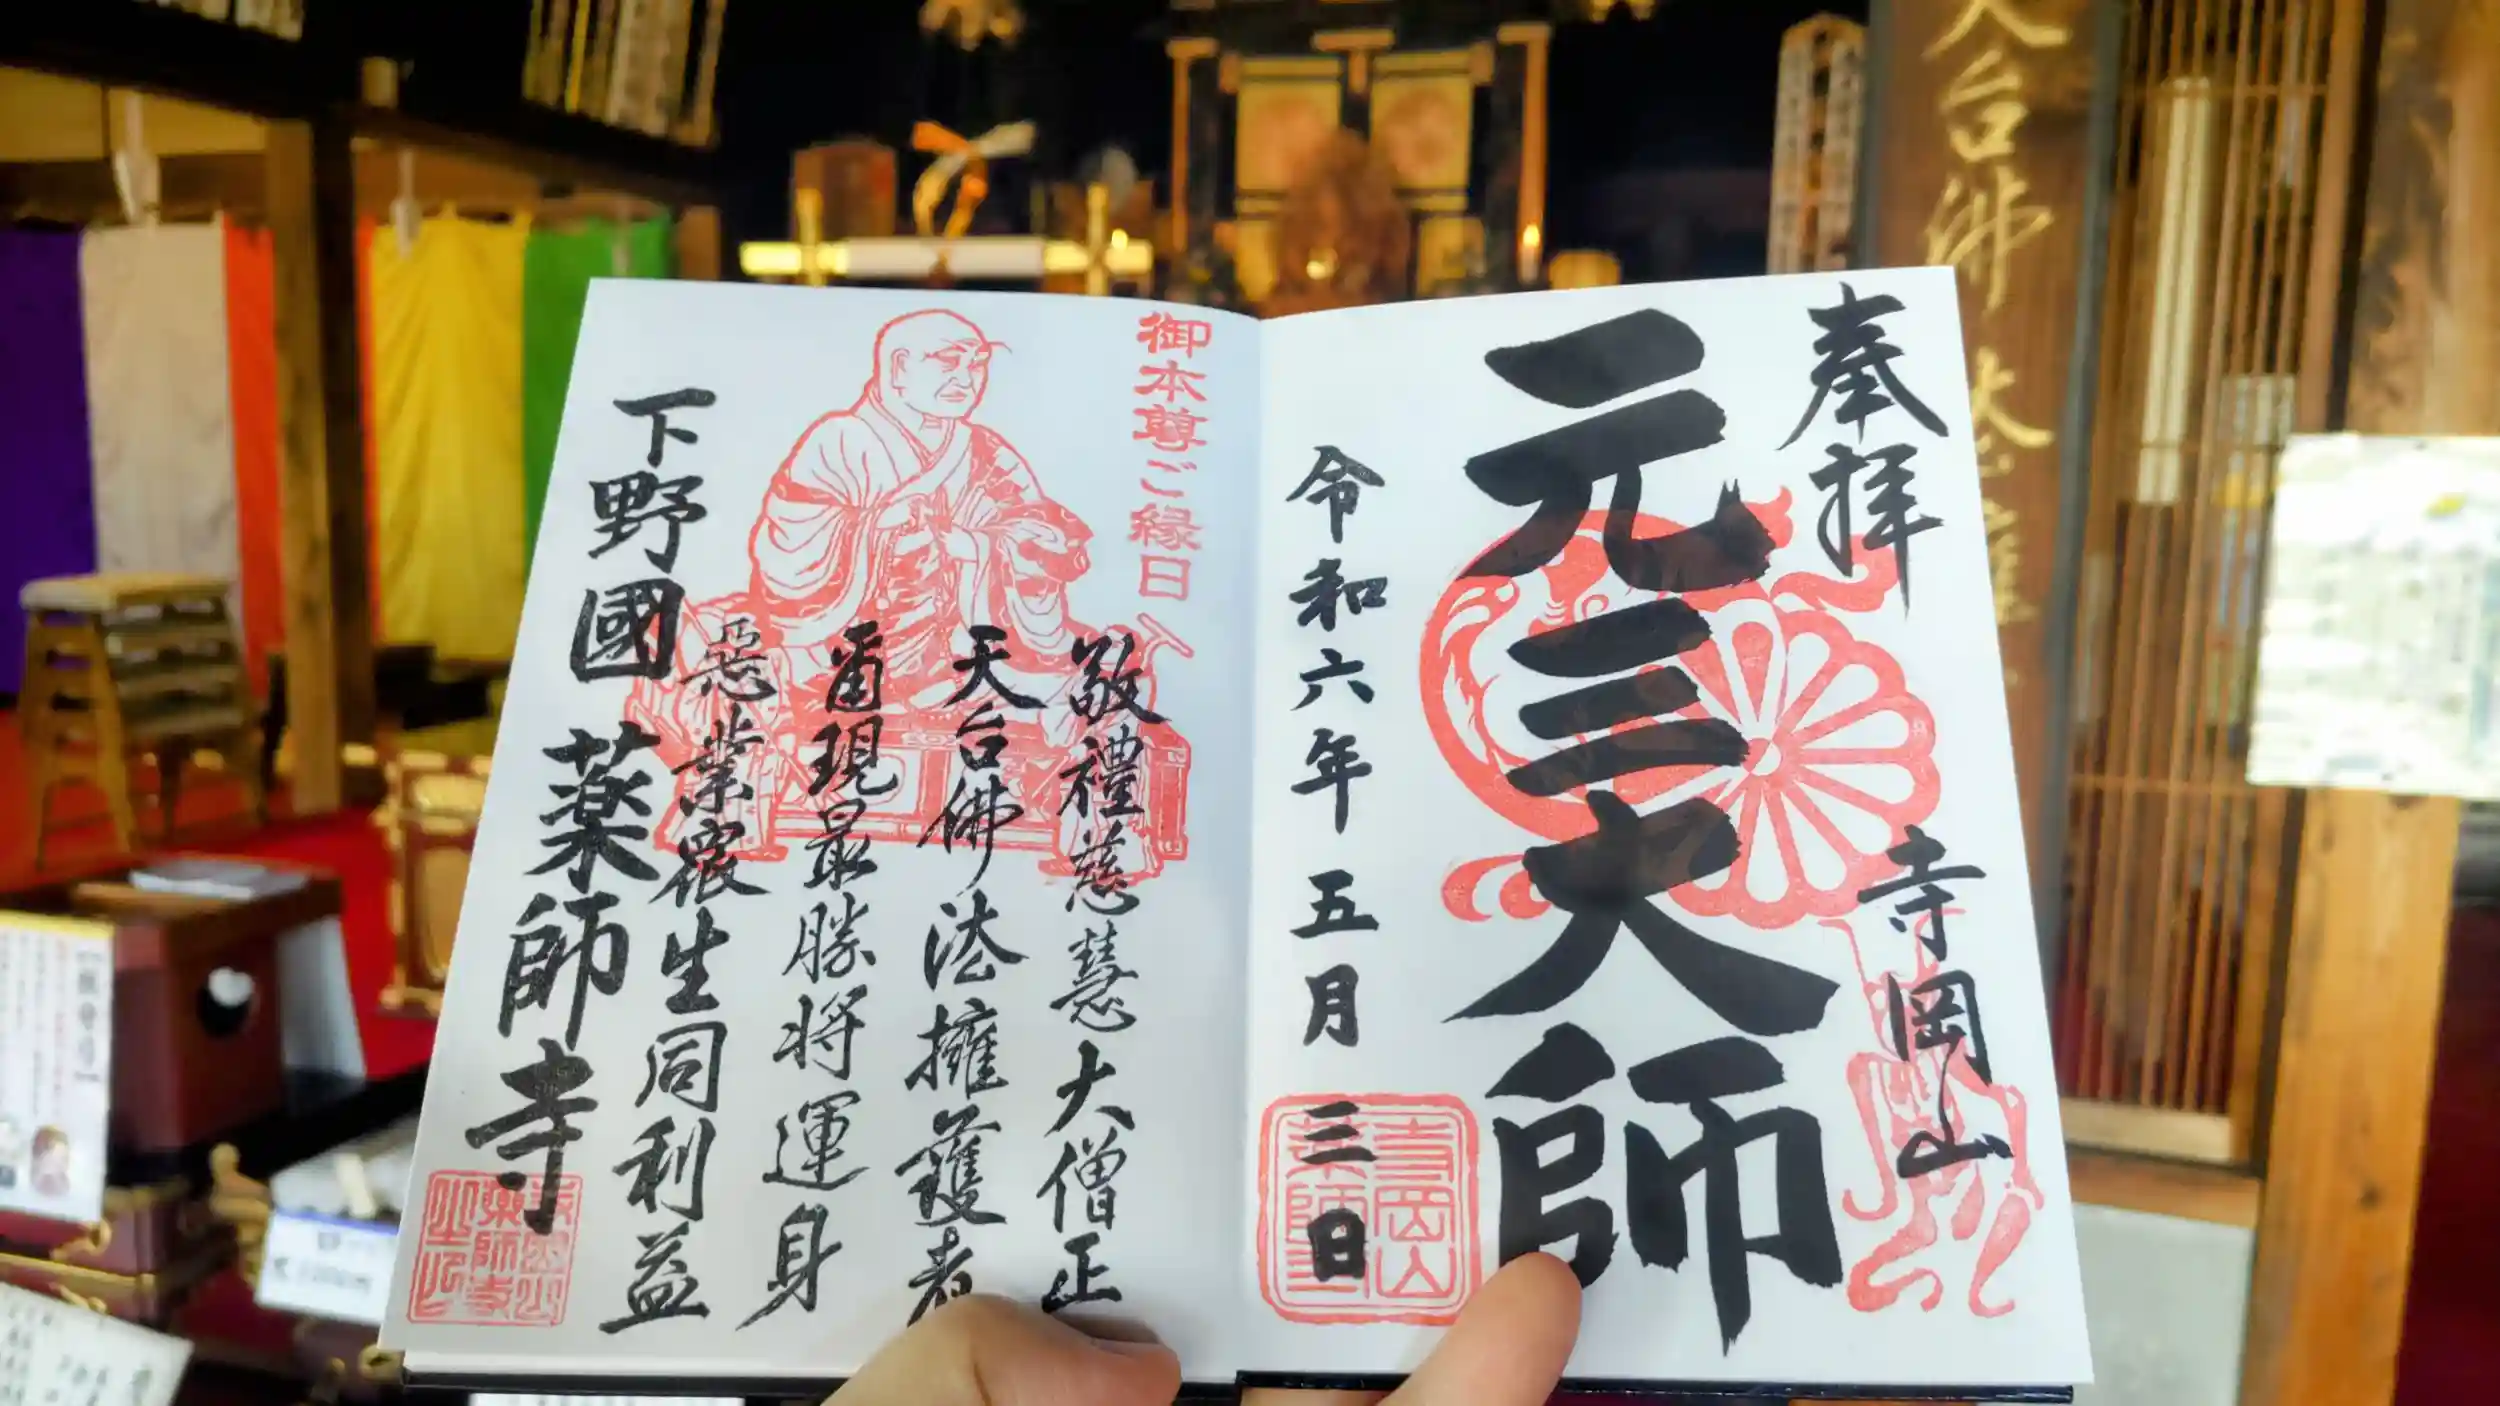 奉拝
寺岡山
元三大師
令和六年五月三日
寺岡山
薬師寺
御本尊ご縁日
敬禮慈慧大僧正
天台佛法擁護者
示現最勝将運身
惡業衆生同利益
下野國薬師寺
天台佛法擁